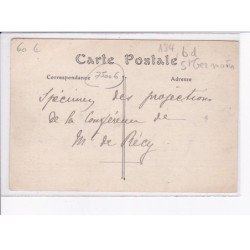 60 €
184 bd
St Germain
Carte Postale
Correspondance
75006
Adresse
Spécimen des projections
de la Conférence de
M. de Récy